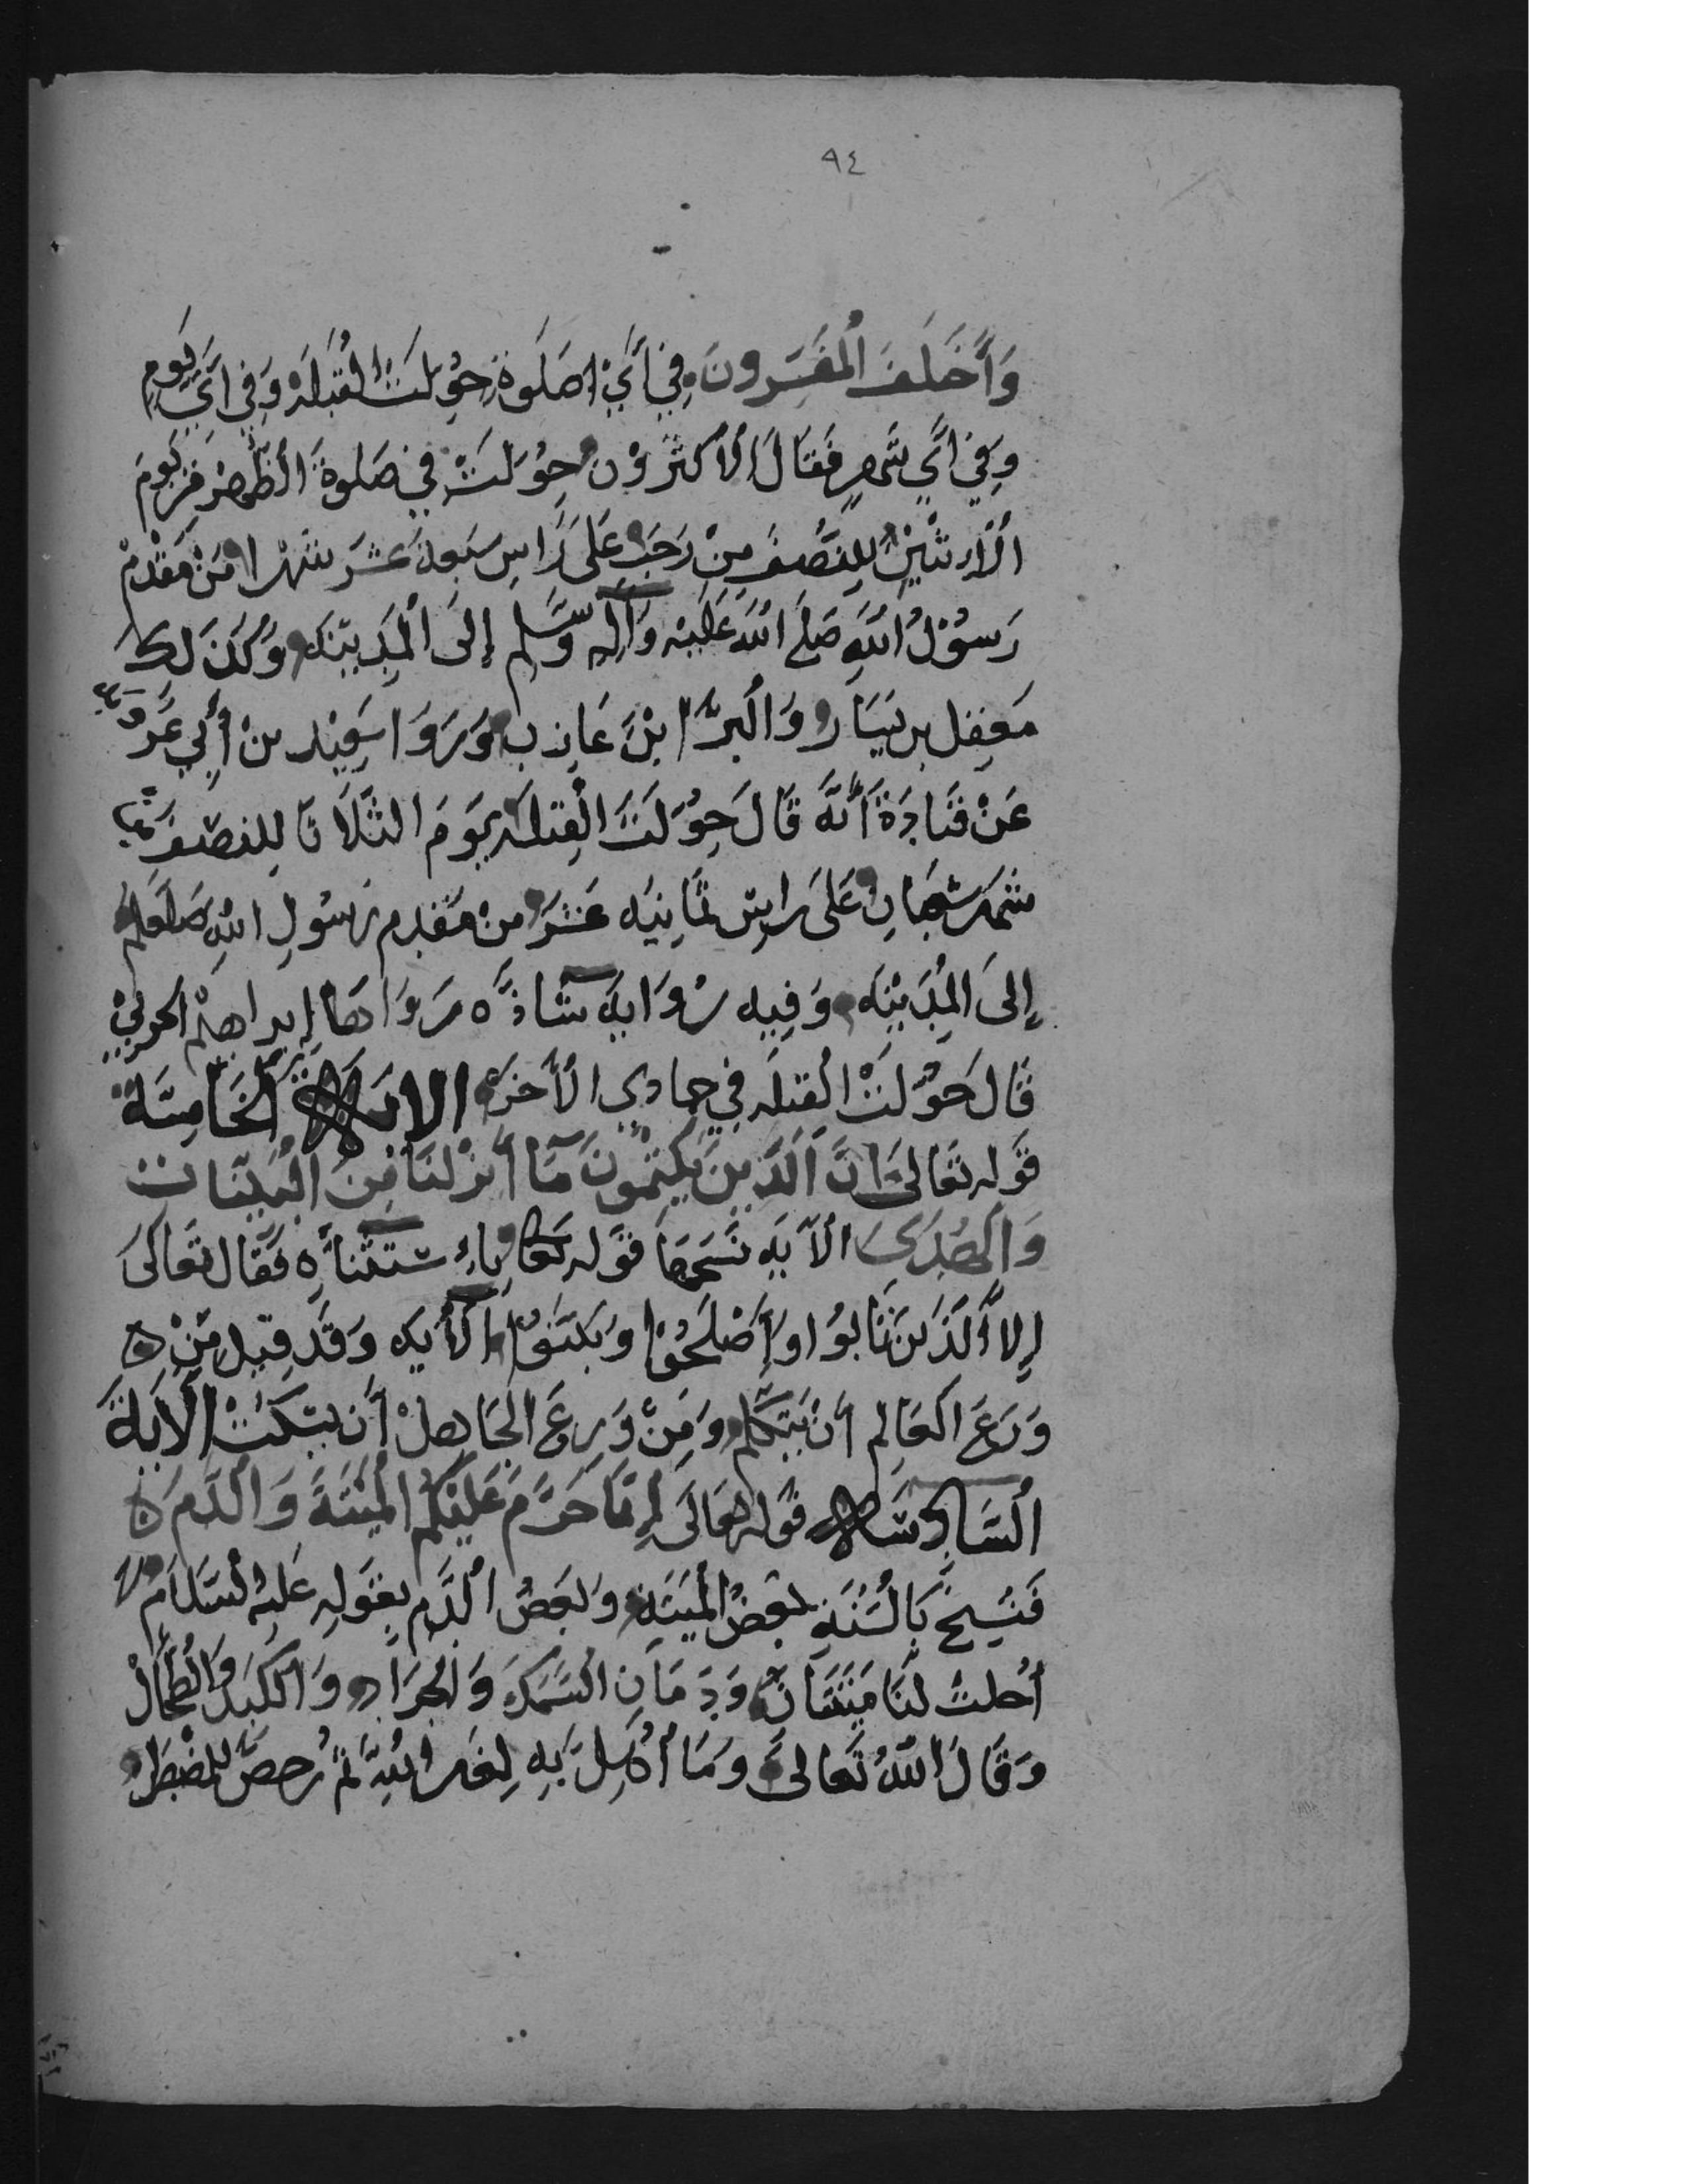 ٩٤
وَأَخَلَفَ اُلْمفَسِّرونَ فِي أَيِّ صَلَوةٍ حُوِّلَتْ القُبلَة وَفِي أَيِّ يَومٍ
وَفِي اَيِّ شَهرٍ فَقَالَ اُلأكثَرُوْن حِوُّلَتْ فِي صَلوةِ الظُّهرْ مِن يَومَ
الْأِثْنَيِن لِلنِصُّفِ مِنْ رَجَبٍ عَلَى رَاسِ سَبعَة عَشَر شَهْرًا مَنْ مَقْدمْ
رَسوُلُ اُللهِ صَلَى اللهُ عَلَيْه وَآلِهِ وَسَّلم إِلىَ اُلْمَدِيِنَه وَكَذَ لِكَ
مَعِفِل بن يَسَار وَالُبرَّا ابْنَ عَازِب وَرَوَا سَعِيْد منْ أَبِي عَروَبة
عَنْ قَتَادَة أَنَّه قَالَ حِوُّلَتْ الْقِبْلَه يَومَ الثَّلَاثَا لِلنصِّف مِنْ
شَهرَ شعبَانِ عَلَى رَاسِ ثمَانِيَه عَشَرَ منْ مَقْدِم رَسُولِ اللهِ صَلعَلم
إِلىَ المِدَيْنَه وَفِيه رْوَايه شَاذَّه رَوَاهَا إِبراهيْم الحَربيِّ
قَالَ حَوُّلَتْ الْقِبلَه فِي جمادِي الأَخرَه الايَة الخَامِسَة
قَوله تعَالىَ إِنَّ اَلَّذَينَ يَكتُمُونَ مَآ أَنزلنَا مِنَ البُيِّنَات
وَالْهُدَى اُلآيَه نَسَخَهَا قَوله تعَا بِاءِستثنَاءِه فَقَال تعَالىَ
إِلاَّ أَلذَينَ تَابوُا وَأَصْلَحُوا وَبَيَّنَوُا اَلأيَه وَقَد قِيلَ مَنْ
وَرَعَ اَلعَالِم أَنْ يَتَكَلَّم وَمِنْ وَرِعَ الجَاهِلْ أَن يسَكُتْ الآيَة
اُلسَّادِسَة قَوله تعَالَى إِنمَا حَرَّمَ عَلَيْكُم اُلمْيَتَةَ وَاُلدَّمَ
فَنُسِخَ بَالسُّنَةِ بَعضُ اُلمْيَتَةِ وَبَعضُ اُلدَّمِ بِقَولِهِ عَلَيهِ السَّلاَمُ
أُحلتْ لَنَا مَيْتَتَانِ وَدَمَانِ السَّمَكِ وَالْجَرَادِ وَالكَبَد وَالُطِحَالْ
وَقَالَ اللهُ تَعَالىَ وَمَا أُهِلَ بَهِ لِغَيرِ اللهِ ثم رُخصَّ لِلمُضْطَر